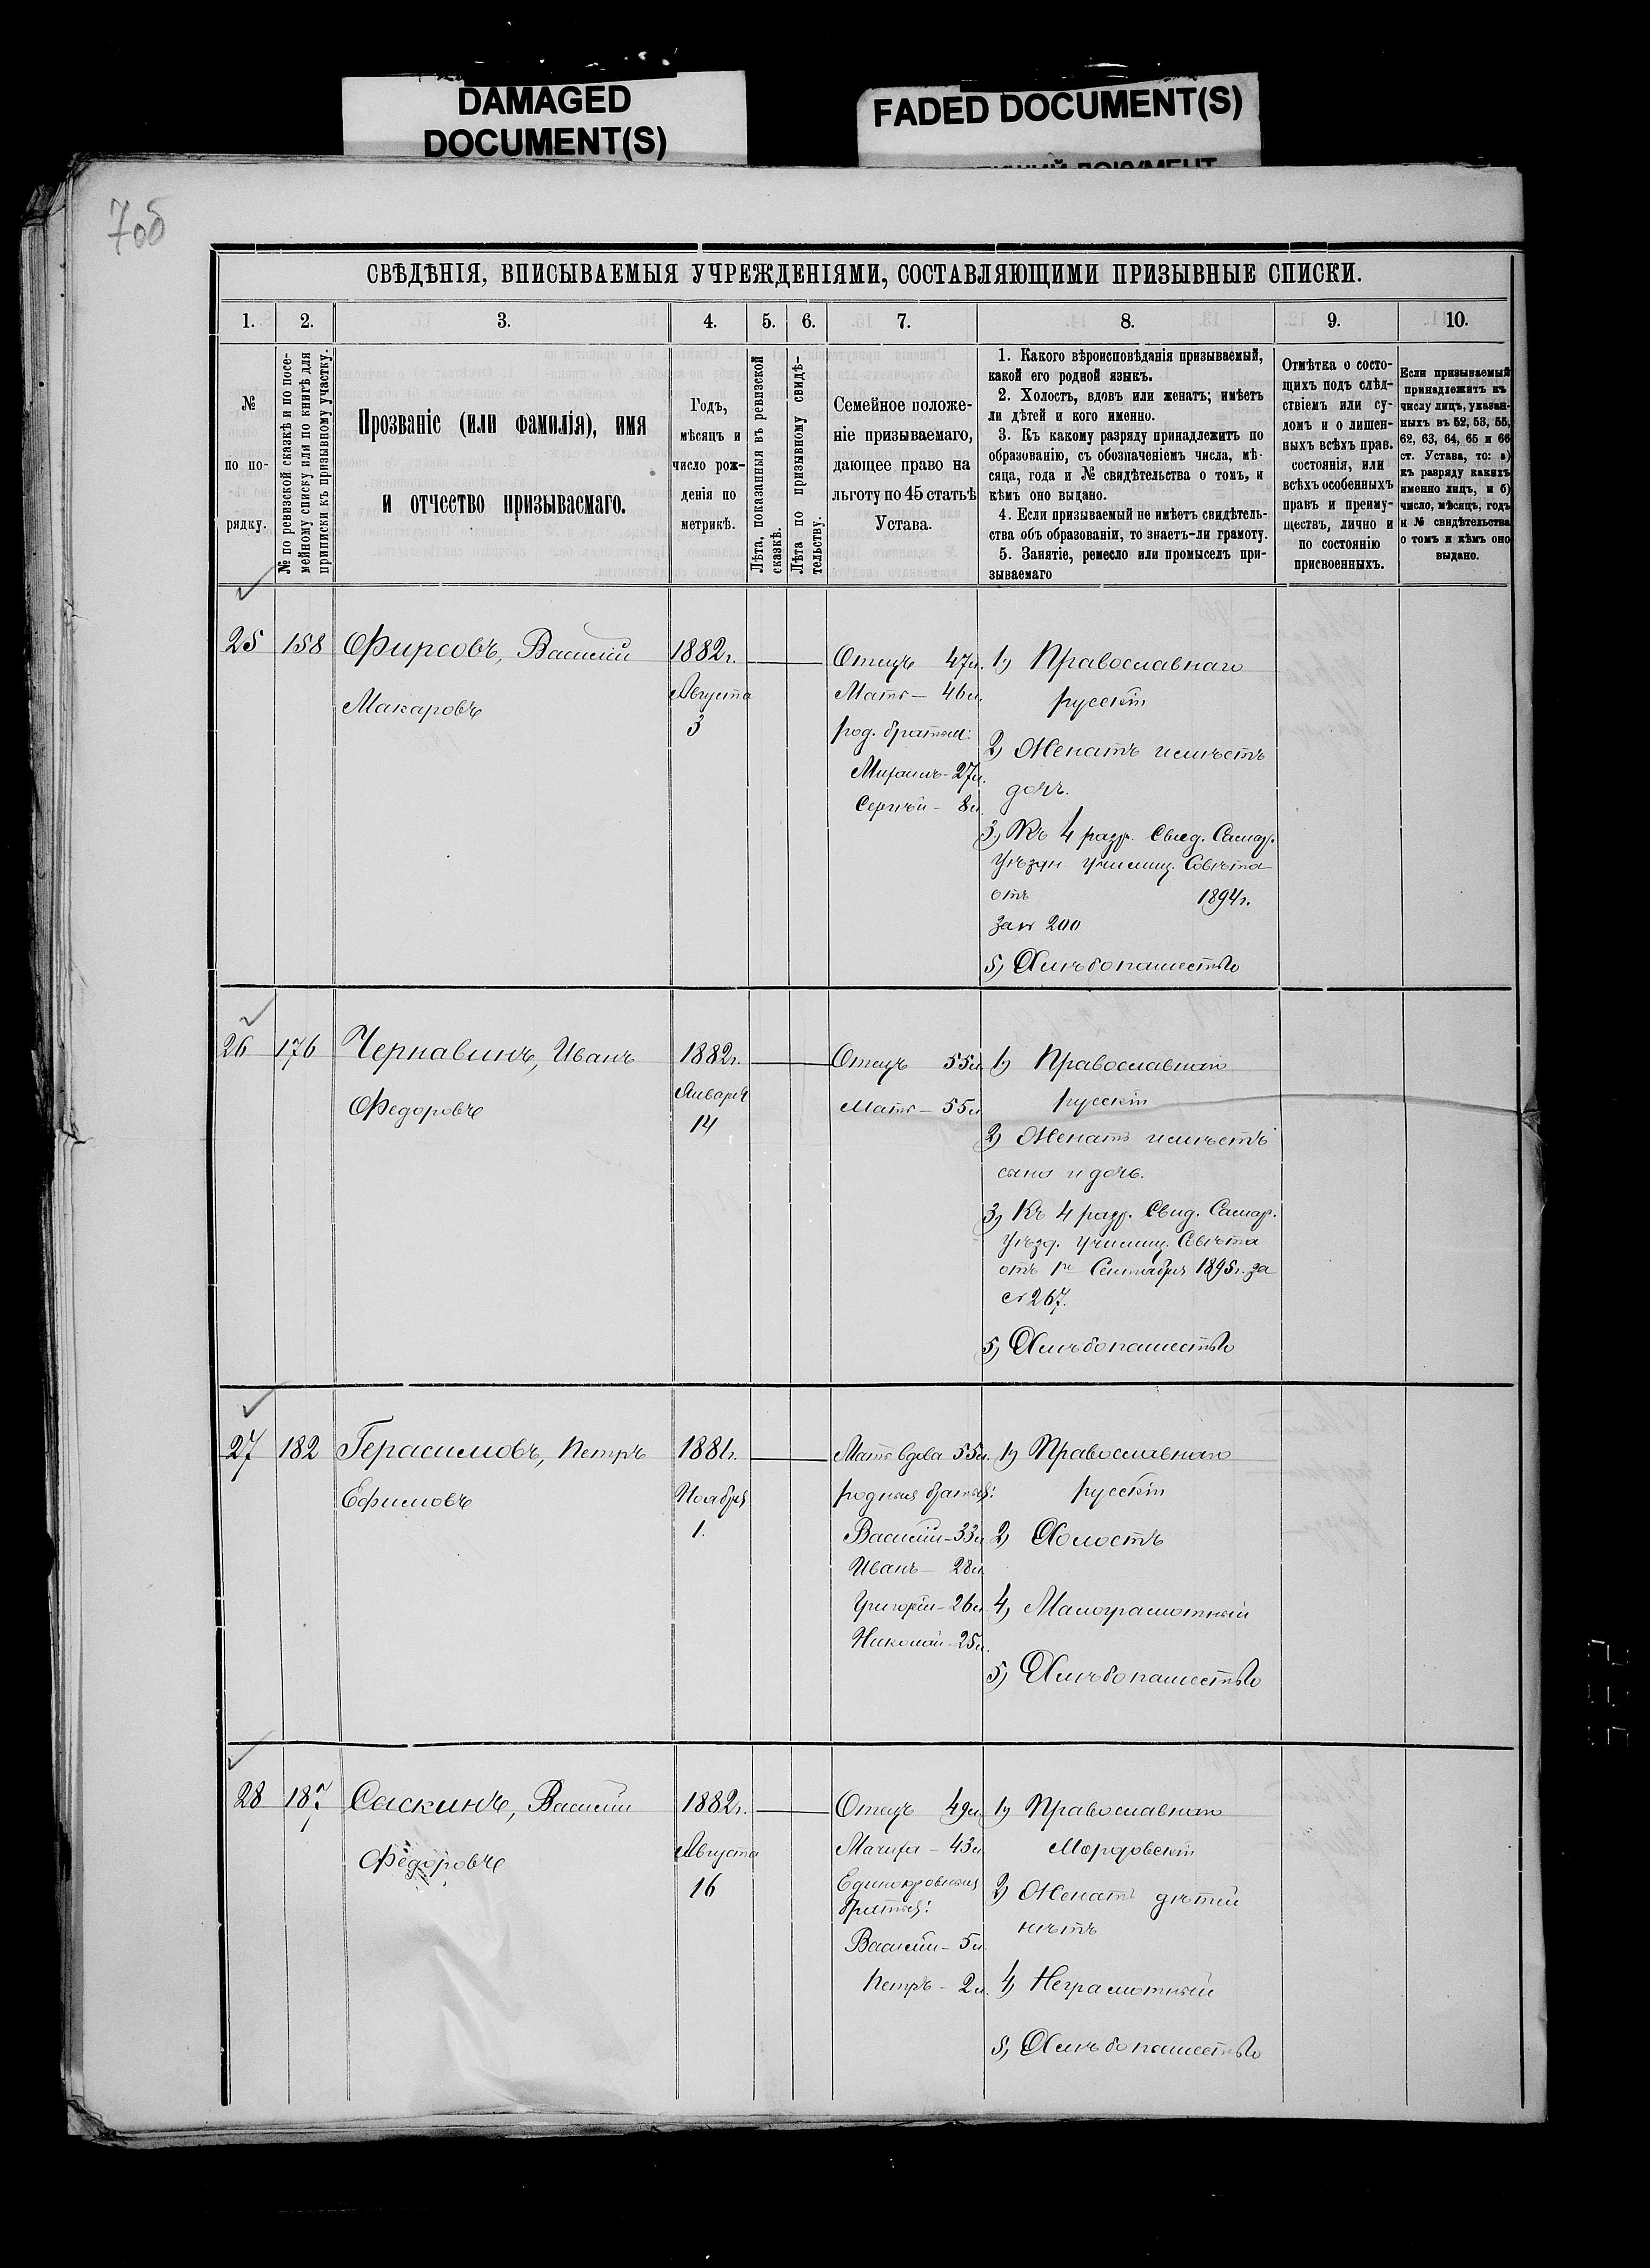 DAMAGED
DOCUMENT(S)
FADED DOCUMENT(S)
7об
СВѢДѢНІЯ, ВПИСЫВАЕМЫЯ УЧРЕЖДЕНІЯМИ, СОСТАВЛЯЮЩИМИ ПРИЗЫВНЫЕ СПИСКИ.
1. 2. 3. 4. 5. 6. 7. 8. 9. 10.
№
по по-
рядку.
№ по ревизской сказкѣ и по посе-
мейному списку или по книгѣ для
приписки къ призывному участку.
Прозваніе (или фамилія), имя
и отчество призываемаго.
Годъ,
мѣсяцъ и
число рож-
денія по
метрикѣ.
Лѣта, показанныя въ ревизской
сказкѣ.
Лѣта по призывному свидѣ-
тельству.
Семейное положе-
ніе призываемаго,
дающее право на
льготу по 45 статьѣ
Устава.
1. Какого вѣроисповѣданія призываемый,
какой его родной языкъ.
2. Холостъ, вдовъ или женатъ; имѣетъ
ли дѣтей и кого именно.
3. Къ какому разряду принадлежитъ по
образованію, съ обозначеніемъ числа, мѣ-
сяца, года и № свидѣтельства о томъ, и
кѣмъ оно выдано.
4. Если призываемый не имѣетъ свидѣтель-
ства объ образованіи, то знаетъ-ли грамоту.
5. Занятіе, ремесло или промыселъ при-
зываемаго
Отмѣтка о состо-
щихъ подъ слѣд-
ствіемъ или су-
домъ и о лишен-
ныхъ всѣхъ прав.
состоянія, или
всѣхъ особенныхъ
правъ и преиму-
ществъ, лично и
по состоянію
присвоенныхъ.
Если призываемый
принадлежитъ къ
числу лицъ, указан-
ныхъ въ 52, 53, 55,
62, 63, 64, 65 и 66
ст. Устава, то: а)
къ разряду какихъ
именно лицъ, и б)
число, мѣсяцъ, годъ
и № свидѣтельства
о томъ и кѣмъ оно
выдано.
25 158 Фирсовъ, Василій
Макаровъ
1882г.
Августа
3
Отецъ 47л.
Мать – 46л.
род. братья:
Михаилъ – 27л.
Сергѣй – 8л.
1) Православнаго
русскій
2) Женатъ имѣетъ
дочь.
3) Къ 4 разр. Свид. Самар.
Уѣздн. Училищ. Совѣта
отъ 1894г.
за № 200
5) Хлѣбопашество
26 176 Чернавинъ, Иванъ
Федоровъ
1882г.
Января
14
Отецъ 55л.
Мать – 55л.
1) Православнаго
русскій
2) Женатъ имѣетъ
сына и дочь.
3) Къ 4 разр. Свид. Самар.
Уѣзд. Училищ. Совѣта
отъ 1го Сентября 1895г. за
№ 267.
5) Хлѣбопашество
27 182 Герасимовъ, Петръ
Ефимовъ
1881г.
Ноября
1.
Мать вдова 55л.
родныя братья:
Василій – 33л.
Иванъ – 28л.
Григорій – 26л.
Николай – 25л.
1) Православнаго
русскій
2) Холостъ
4) Малограмотный
5) Хлѣбопашество
28 187 Саскинъ, Василій
Федоровъ
1882г.
Августа
16
Отецъ 49л.
Мачиха – 43л.
Единокровныя
братья:
Василій – 5л.
Петръ – 2л.
1) Православнаго
Мордовскій
2) Женатъ дѣтей
нѣтъ
4) Неграмотный
5) Хлѣбопашество